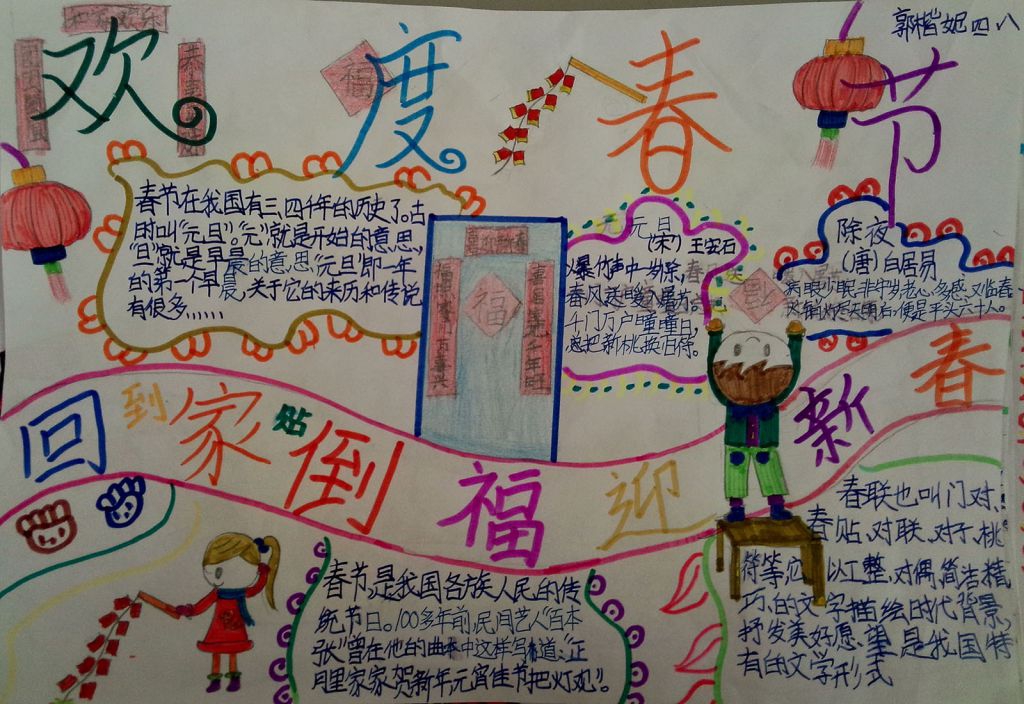 郭楷妮 四、八
欢度春节
福
春节在我国有三、四千年的历史了。古
时叫“元旦”。“元”就是开始的意思,
“旦”就是早晨的意思“元旦”即一年
的第一个早晨,关于它的来历和传说
有很多……
福
元旦
(宋) 王安石
爆竹声中一岁除,
春风送暖入屠苏。
千门万户曈曈日,
总把新桃换旧符。
除夜
(唐) 白居易
病眼少眠非守岁老心多感又临春
火销灯尽天明后,便是平头六十人。
回到家贴倒福迎新春
春节,是我国各族人民的传
统节日。100多年前,民间艺人“百本
张”曾在他的曲本中这样写道:“正
月里家家贺新年元宵佳节把灯观”。
春联也叫门对、
春贴、对联、对子、桃
符等,它以工整、对偶、简洁、精
巧、的文字描绘时代背景,
抒发美好愿望是我国特
有的文学形式